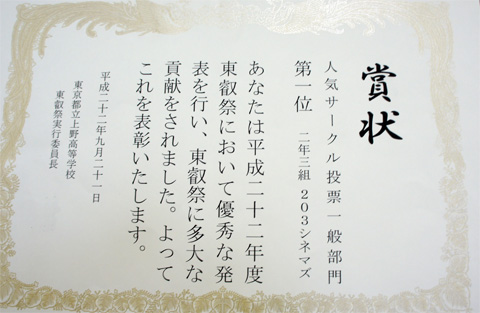 賞状
人気サークル投票一般部門
第一位 二年三組 203シネマズ
あなたは平成二十二年度
東叡祭において優秀な発
表を行い、東叡祭に多大な
貢献をされました。よって
これを表彰いたします。
平成二十二年九月二十一日
東京都立上野高等学校
東叡祭実行委員長